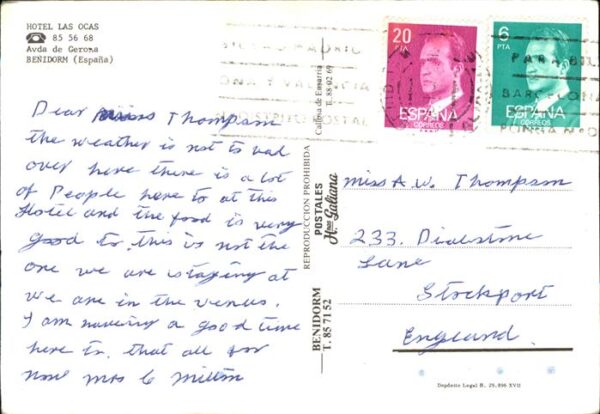 HOTEL LAS OCAS
☎ 85 56 68
Avda de Gerona
BENIDORM (España)
Dear miss Thompson
the weather is not to bad
over here there is a lot
of People here to at this
Hotel and the food is very
good to. this is not the
one we are staying at
we are in the venus.
I am having a good time
here to. that all for
now mrs C Milton
BENIDORM
T. 85 71 52
REPRODUCCION PROHIBIDA
POSTALES
Hnos Galiana
T. 88 02 69
20
PTA
ESPAÑA
CORREOS
6
PTA
ESPAÑA
CORREOS
MADRID
ONA Y VALENCIA
DISTRITO POSTAL
PARA
BARCELONA
PONGA
miss A.W. Thompson
233. Dialstone
Lane
Stockport
England.
Depósito Legal B. 29.896 XVII